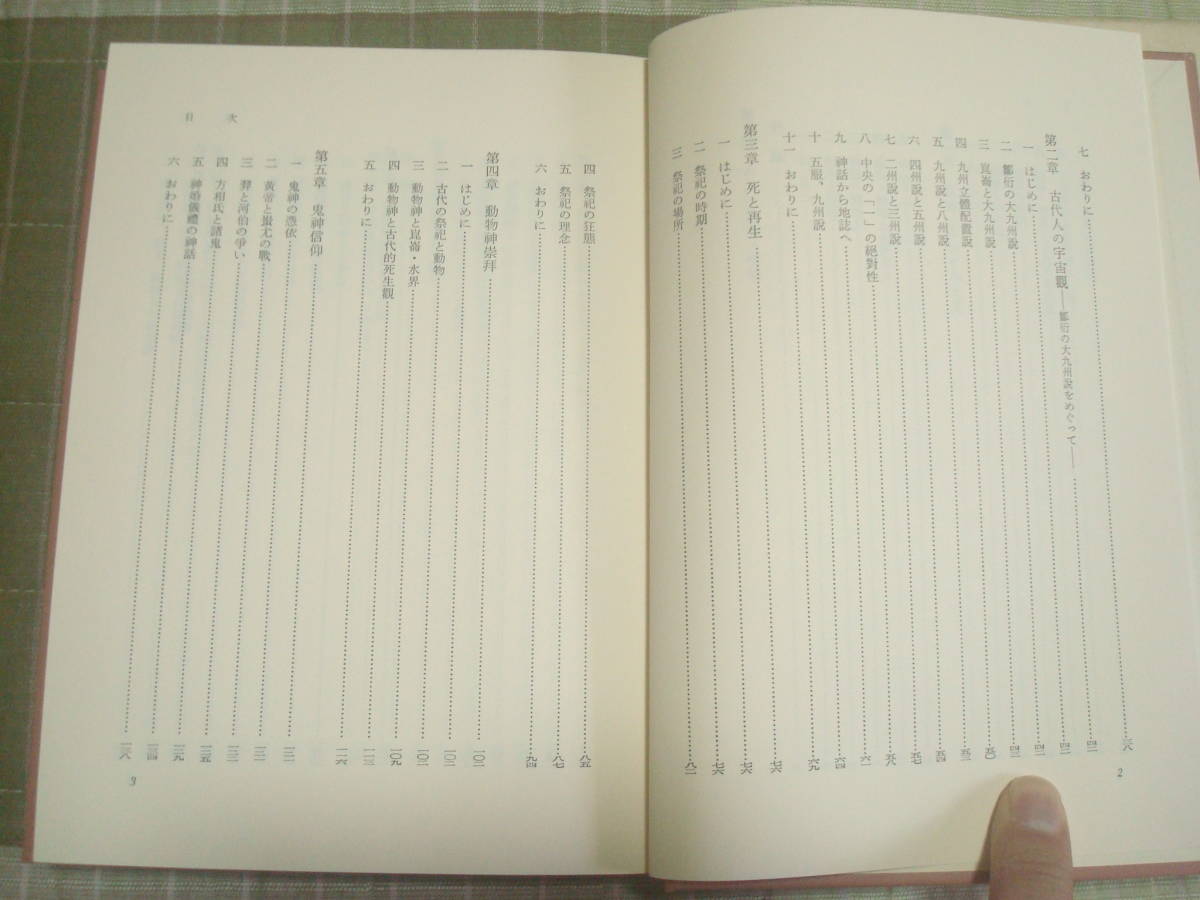 七　おわりに……三八
第二章　古代人の宇宙觀——鄒衍の大九州說をめぐって——……四二
一　はじめに……四二
二　鄒衍の大九州說……四三
三　崑崙と大九州說……五〇
四　九州立體配置說……五三
五　九州說と八州說……五四
六　四州說と五州說……五七
七　二州說と三州說……五八
八　中央の「一」の絕對性……六一
九　神話から地誌へ……六四
十　五服、九州說……六九
十一　おわりに……七六
第三章　死と再生……七六
一　はじめに……七六
二　祭祀の時期
三　祭祀の場所……八二
2
目次
四　祭祀の狂態……八五
五　祭祀の理念……八七
六　おわりに……九四
第四章　動物神崇拜……一〇二
一　はじめに……一〇二
二　古代の祭祀と動物……一〇二
三　動物神と崑崙・水界……一〇九
四　動物神と古代的死生觀……一一三
五　おわりに……一一六
第五章　鬼神信仰
一　鬼神の憑依
二　黃帝と蚩尤の戰
三　羿と河伯の爭い
四　方相氏と諸鬼
五　神婚儀禮の神話
六　おわりに
3